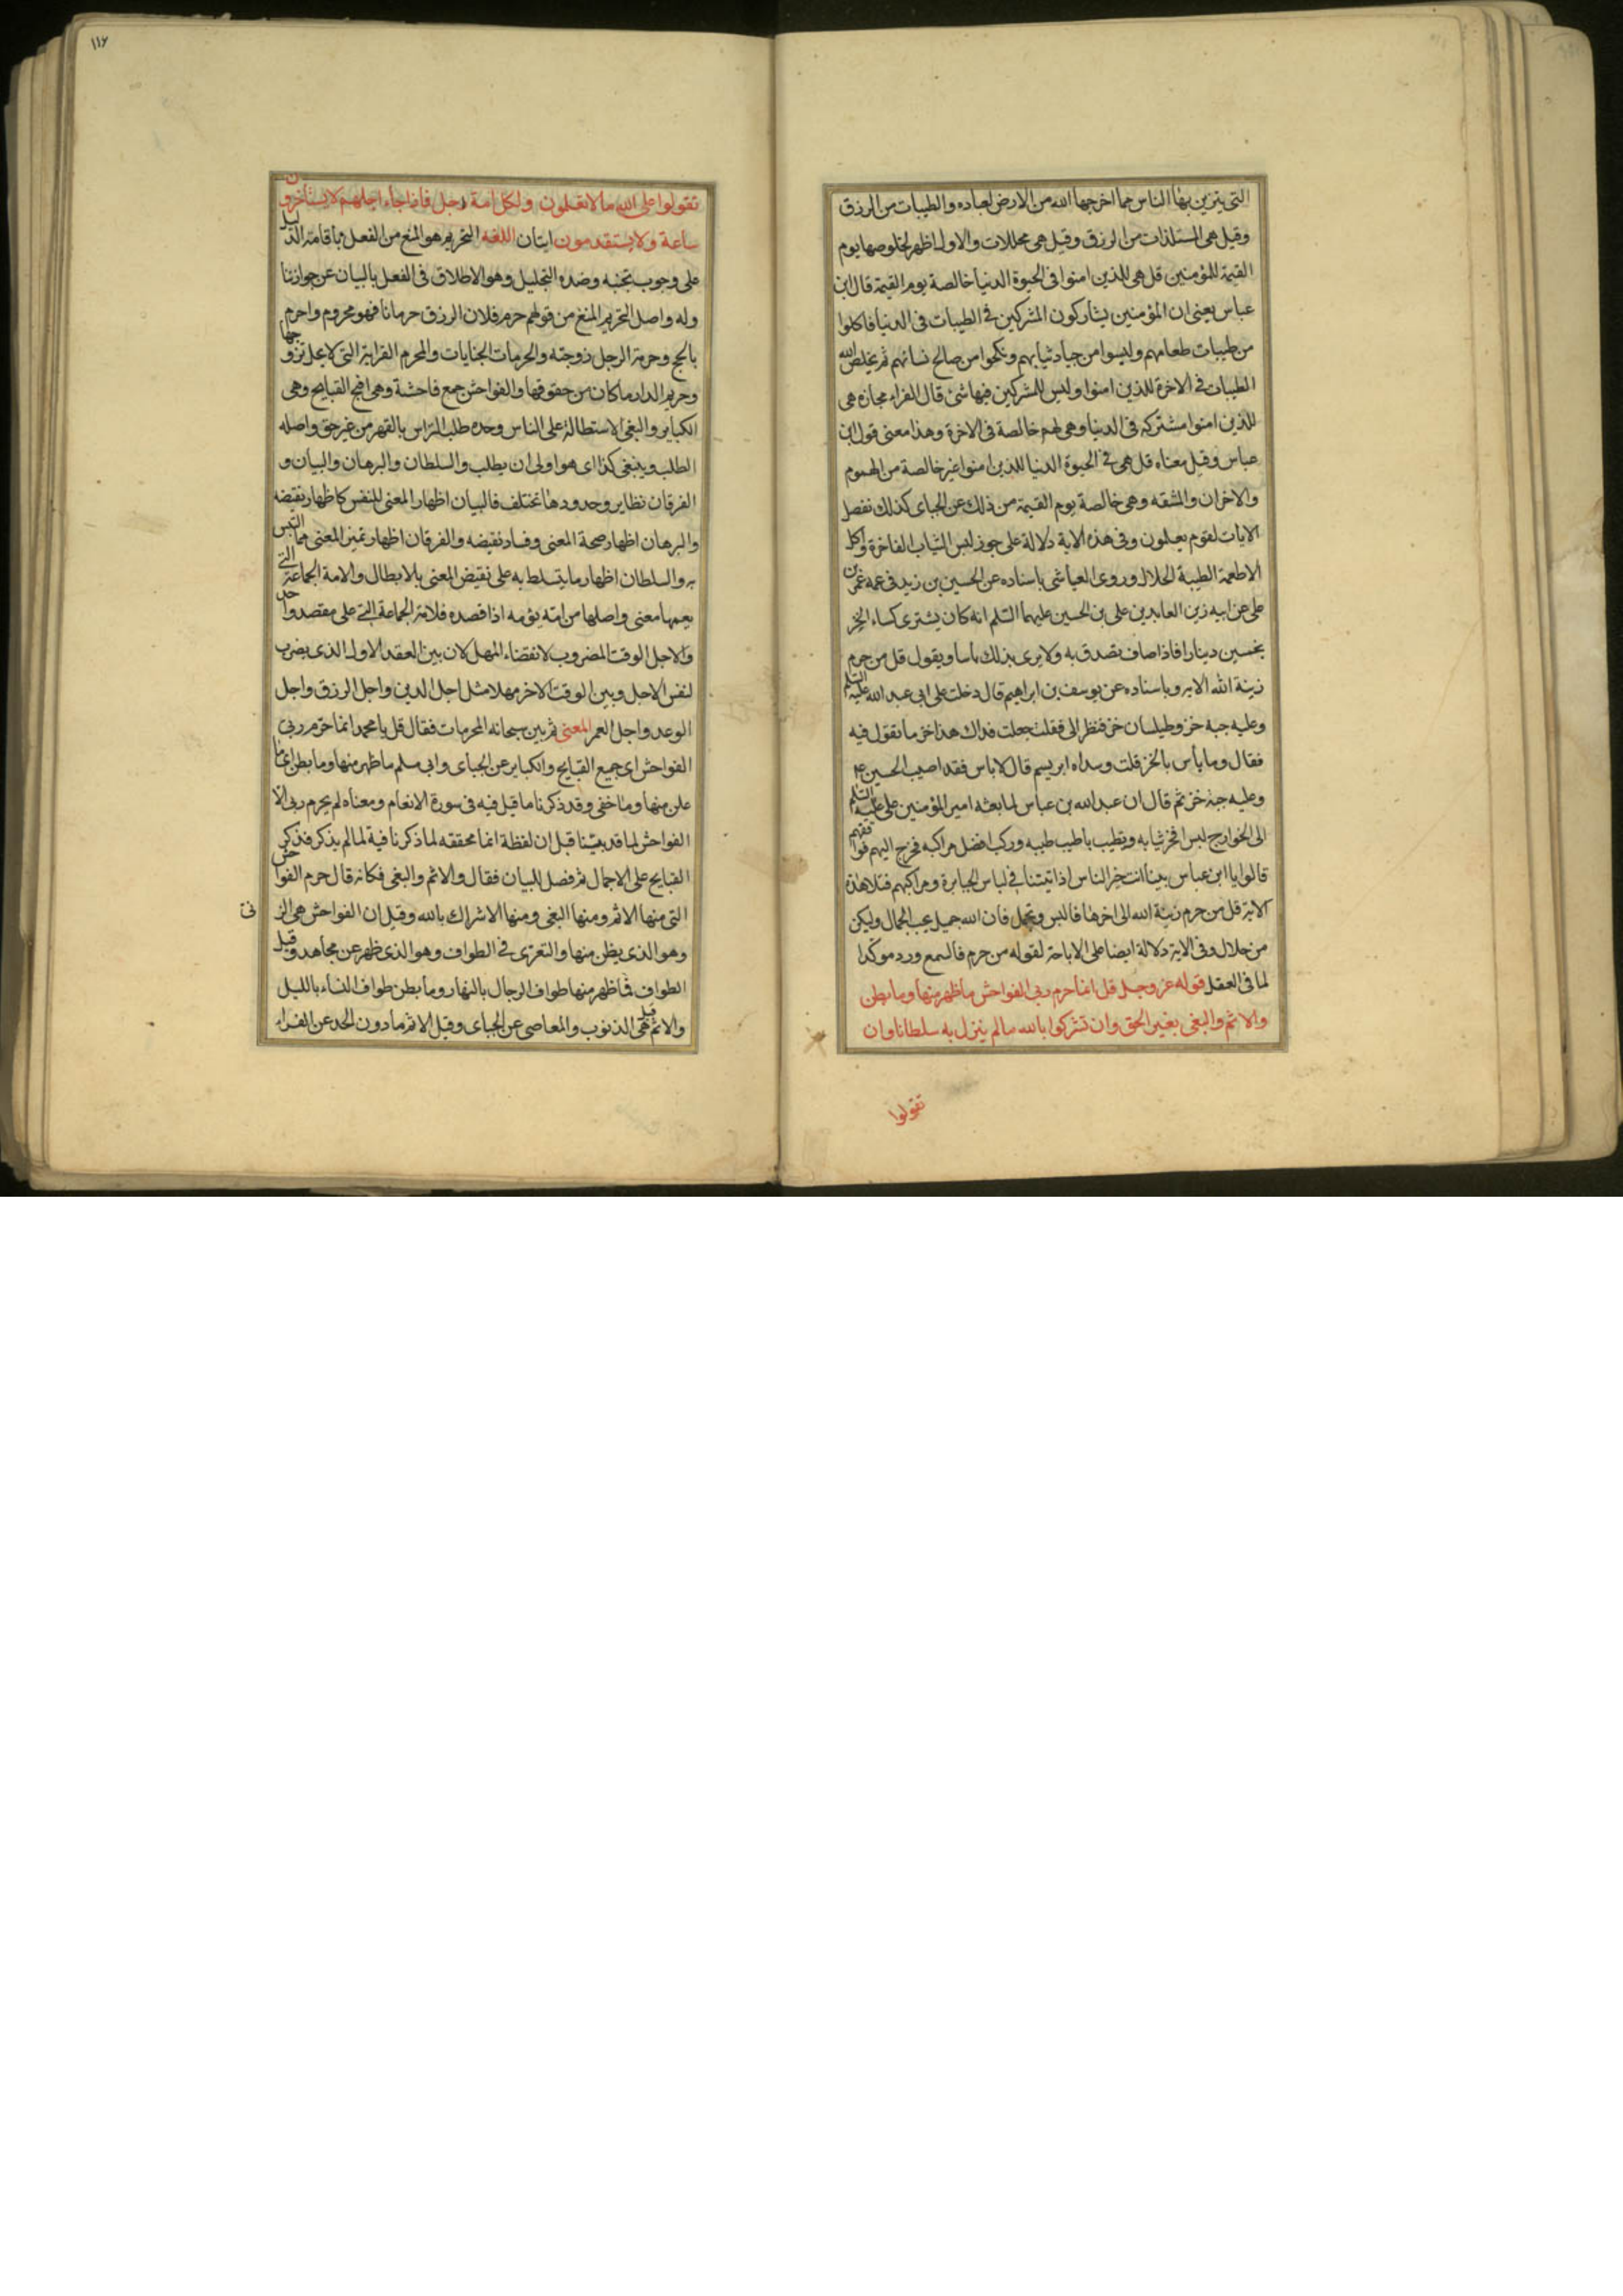 التى يتزين بها الناس مما اخرجها الله من الارض لعباده والطيبات من الرزق
وقيل هى المستلذات من الرزق وقيل هى محللات والاول اظهر لخلوصها يوم
القيمة للمؤمنين قل هى للذين امنوا فى الحيوة الدنيا خالصة يوم القيمة قال ابن
عباس يعنى ان المؤمنين يشاركون المشركين فى الطيبات فى الدنيا فاكلوا
من طيبات طعامهم ولبسوا من جياد ثيابهم ونكحوا من صالح نسائهم ثم يخلص الله
الطيبات فى الاخرة للذين امنوا وليس للمشركين فيها شئ قال الفراء مجازه هى
للذين امنوا مشتركه فى الدنيا وهى لهم خالصة فى الاخرة وهذا معنى قول ابن
عباس وقيل معناه قل هى فى الحيوة الدنيا للذين امنوا غير خالصة من الهموم
والاحزان والمشقه وهى خالصة يوم القيمة من ذلك عن الجباى كذلك نفصل
الايات لقوم يعلمون وفى هذه الاية دلالة على جوز لبس الثياب الفاخرة واكل
الاطعمة الطيبة الحلال وروى العياشى باسناده عن الحسين بن زيد فى عمه عمر بن
على عن ابيه زين العابدين على بن الحسين عليهما السلم انه كان يشترى كساء الخز
بخمسين دينارا فاذا صاف تصدق به ولا يرى بذلك باسا ويقول قل من حرم
زينة الله الاية وباسناده عن يوسف بن ابراهيم قال دخلت على ابى عبد الله عليه السلم
وعليه جبة خز وطيلسان خز فنظر الى فقلت جعلت فداك هذا خز ما تقول فيه
فقال وما بأس بالخز قلت وسداه ابريسم قال لا باس فقد اصيب الحسين ع
وعليه جبة خز ثم قال ان عبد الله بن عباس لما بعثه امير المؤمنين على عليه السلم
الى الخوارج لبس افخر ثيابه وتطيب باطيب طيبه وركب افضل مراكبه فخرج اليهم فواقفهم
قالوا يا ابن عباس بينا انت خير الناس اذ اتيتنا فى لباس الجبابرة ومراكبهم فتلا هذه
الاية قل من حرم زينة الله الى اخرها فالبس وتجمل فان الله جميل يحب الجمال وليكن
من حلال وفى الاية دلالة ايضا على الاباحة لقوله من حرم فالسمع ورد موكدا
لما فى العقل قوله عز وجل قل انما حرم ربى الفواحش ما ظهر منها وما بطن
والاثم والبغى بغير الحق وان تشركوا بالله ما لم ينزل به سلطانا وان
تقولوا
١١٦
تقولوا على الله ما لا تعلمون ولكل امة اجل فاذا جاء اجلهم لا يستأخرون
ساعة ولا يستقدمون ايتان اللغه التحريم هو المنع من الفعل باقامة الدليل
على وجوب تجنبه وضده التحليل وهو الاطلاق فى الفعل بالبيان عن جواز تنا
وله واصل التحريم المنع من قولهم حرم فلان الرزق حرمانا فهو محروم واحرم
بالحج وحرمة الرجل زوجته والحرمات الجنايات والمحرم القرابة التى لا يحل تزوجها
وحريم الدار ما كان من حقوقها والفواحش جمع فاحشة وهى اقبح القبايح وهى
الكباير والبغى الاستطالة على الناس وحده طلب الترأس بالقهر من غير حق واصله
الطلب وينبغى كذا اى هو اولى ان يطلب والسلطان والبرهان والبيان و
الفرقان نظاير وحدودها تختلف فالبيان اظهار المعنى للنفس كاظهار نقيضه
والبرهان اظهار صحة المعنى وفساد نقيضه والفرقان اظهار تميز المعنى مما التبس
به والسلطان اظهار ما يتسلط به على نقيض المعنى بالابطال والامة الجماعة التى
يعمها معنى واصلها من امه يؤمه اذا قصده فلامة الجماعة التى على مقصد واحد
والاجل الوقت المضروب لانقضاء المهل لان بين العقد الاول الذى يضرب
لنفس الاجل وبين الوقت الاخر مهلا مثل اجل الدين واجل الرزق واجل
الوعد واجل العمر المعنى ثم بين سبحانه المحرمات فقال قل يا محمد انما حرم ربى
الفواحش اى جميع القبايح والكباير عن الجباى وابى مسلم ما ظهر منها وما بطن اى ما
علن منها وما خفى وقد ذكرنا ما قيل فيه فى سورة الانعام ومعناه لم يحرم ربى الا
الفواحش لما قد بينا قبل ان لفظة انما محققه لما ذكر نافية لما لم يذكر فذكر
القبايح على الاجمال ثم فصل للبيان فقال والاثم والبغى فكانه قال حرم الفواحش
التى منها الاثم ومنها البغى ومنها الاشراك بالله وقيل ان الفواحش هى الزنى
وهو الذى بطن منها والتعرى فى الطواف وهو الذى ظهر عن مجاهد وقيل
الطواف فما ظهر منها طواف الرجال بالنهار وما بطن طواف النساء بالليل
والاثم قيل هى الذنوب والمعاصى عن الجباى وقيل الاثم ما دون الحد عن الفراء